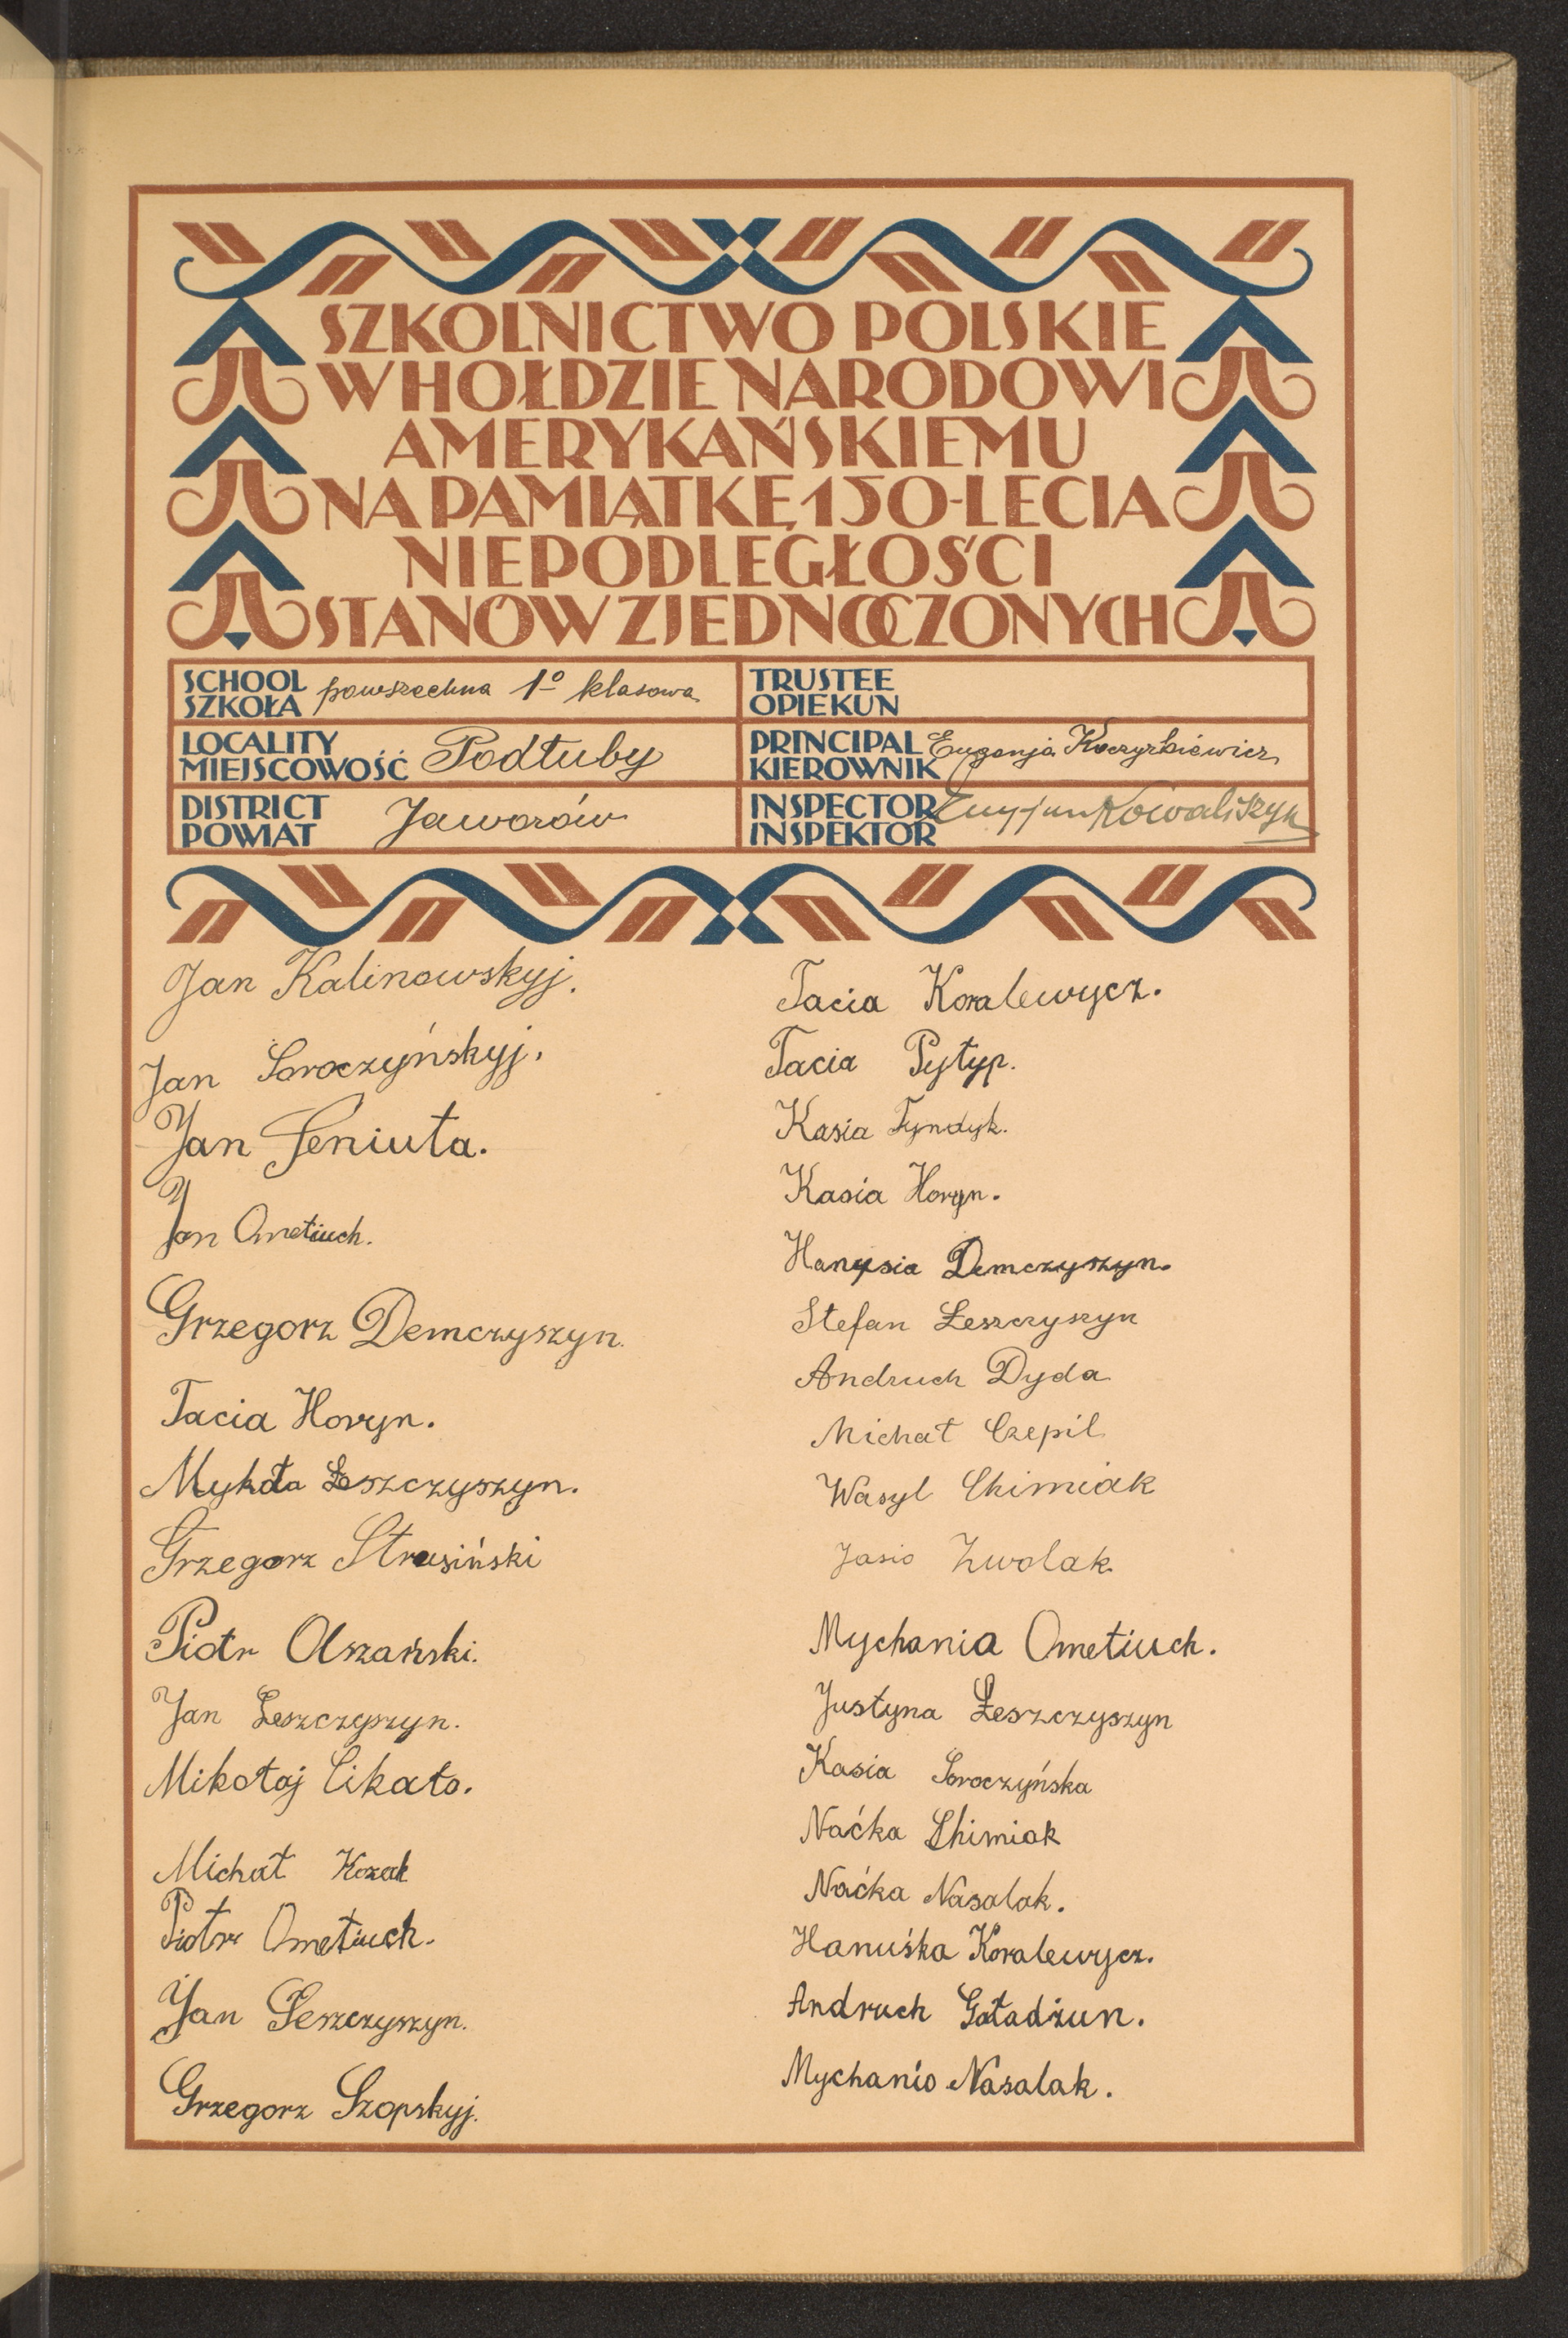 SZKOLNICTWO POLSKIE
W HOŁDZIE NARODOWI
AMERYKAŃSKIEMU
NA PAMIĄTKĘ 150-LECIA
NIEPODLEGŁOŚCI
STANÓW ZJEDNOCZONYCH
SCHOOL
SZKOŁA powszechna 1º klasowa
TRUSTEE
OPIEKUN
LOCALITY
MIEJSCOWOŚĆ Podłuby
PRINCIPAL
KIEROWNIK Eugenja
DISTRICT
POWIAT Jaworów
INSPECTOR
INSPEKTOR Kowaliszyn
Jan Kalinowskyj.
Jan Soroczyńskyj.
Jan Seniuta.
Jan Ometiuch.
Grzegorz Demczyszyn.
Tacia Horyn.
Mykoła Łeszczyszyn.
Grzegorz Strusiński
Piotr Olszański.
Jan Łeszczyszyn.
Mikołaj Cikało.
Michał Kozak
Piotr Ometiuch.
Jan Łeszczyszyn.
Grzegorz Szopskyj.
Tacia Koralewycz.
Tacia Pyłyp.
Kasia Tyndyk.
Kasia Horyn.
Hanysia Demczyszyn.
Stefan Łeszczyszyn
Andruch Dyda
Michał Czepil
Wasyl Chimiak
Jasio Zwolak
Mychania Ometiuch.
Justyna Łeszczyszyn
Kasia Soroczyńska
Naćka Chimiak
Naćka Nasalak.
Hanuśka Koralewycz.
Andruch Gaładżun.
Mychanio Nasalak.